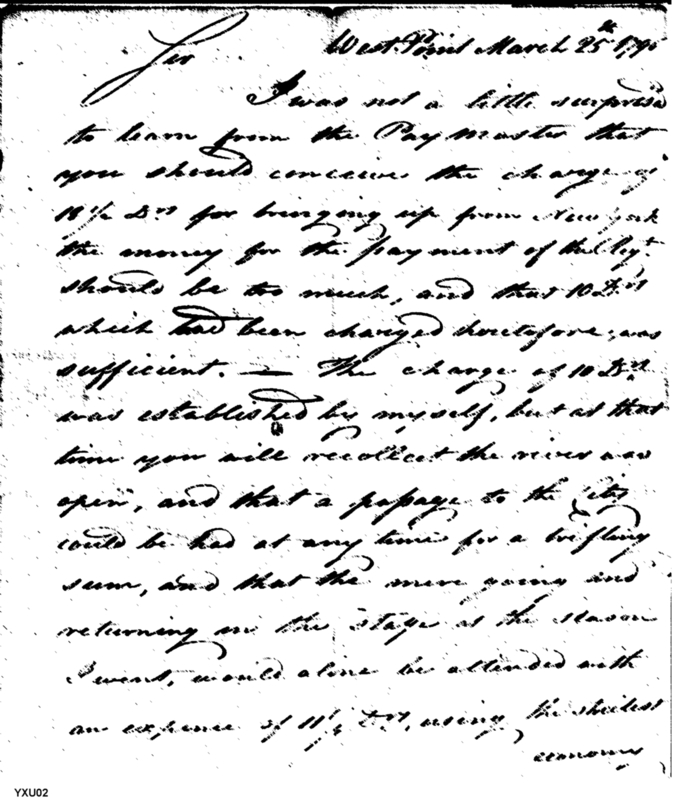 West Point March 25th 179
Sir
I was not a little surprised
to learn from the Pay Master that
you should conceive the charge of
18 1/2 Drs for bringing up from New York
the money for the payment of the Regt.
should be too much, and that 10 Drs
which had been charged heretofore, was
sufficient. — The charge of 10 Drs
was established by myself, but at that
time you will recollect the river was
open, and that a passage to the City
could be had at any time for a trifling
sum, and that the mere going and
returning in the stage at the season
I went, would alone be attended with
an expence of 11 Drs, using the strictest
economy
YXU02